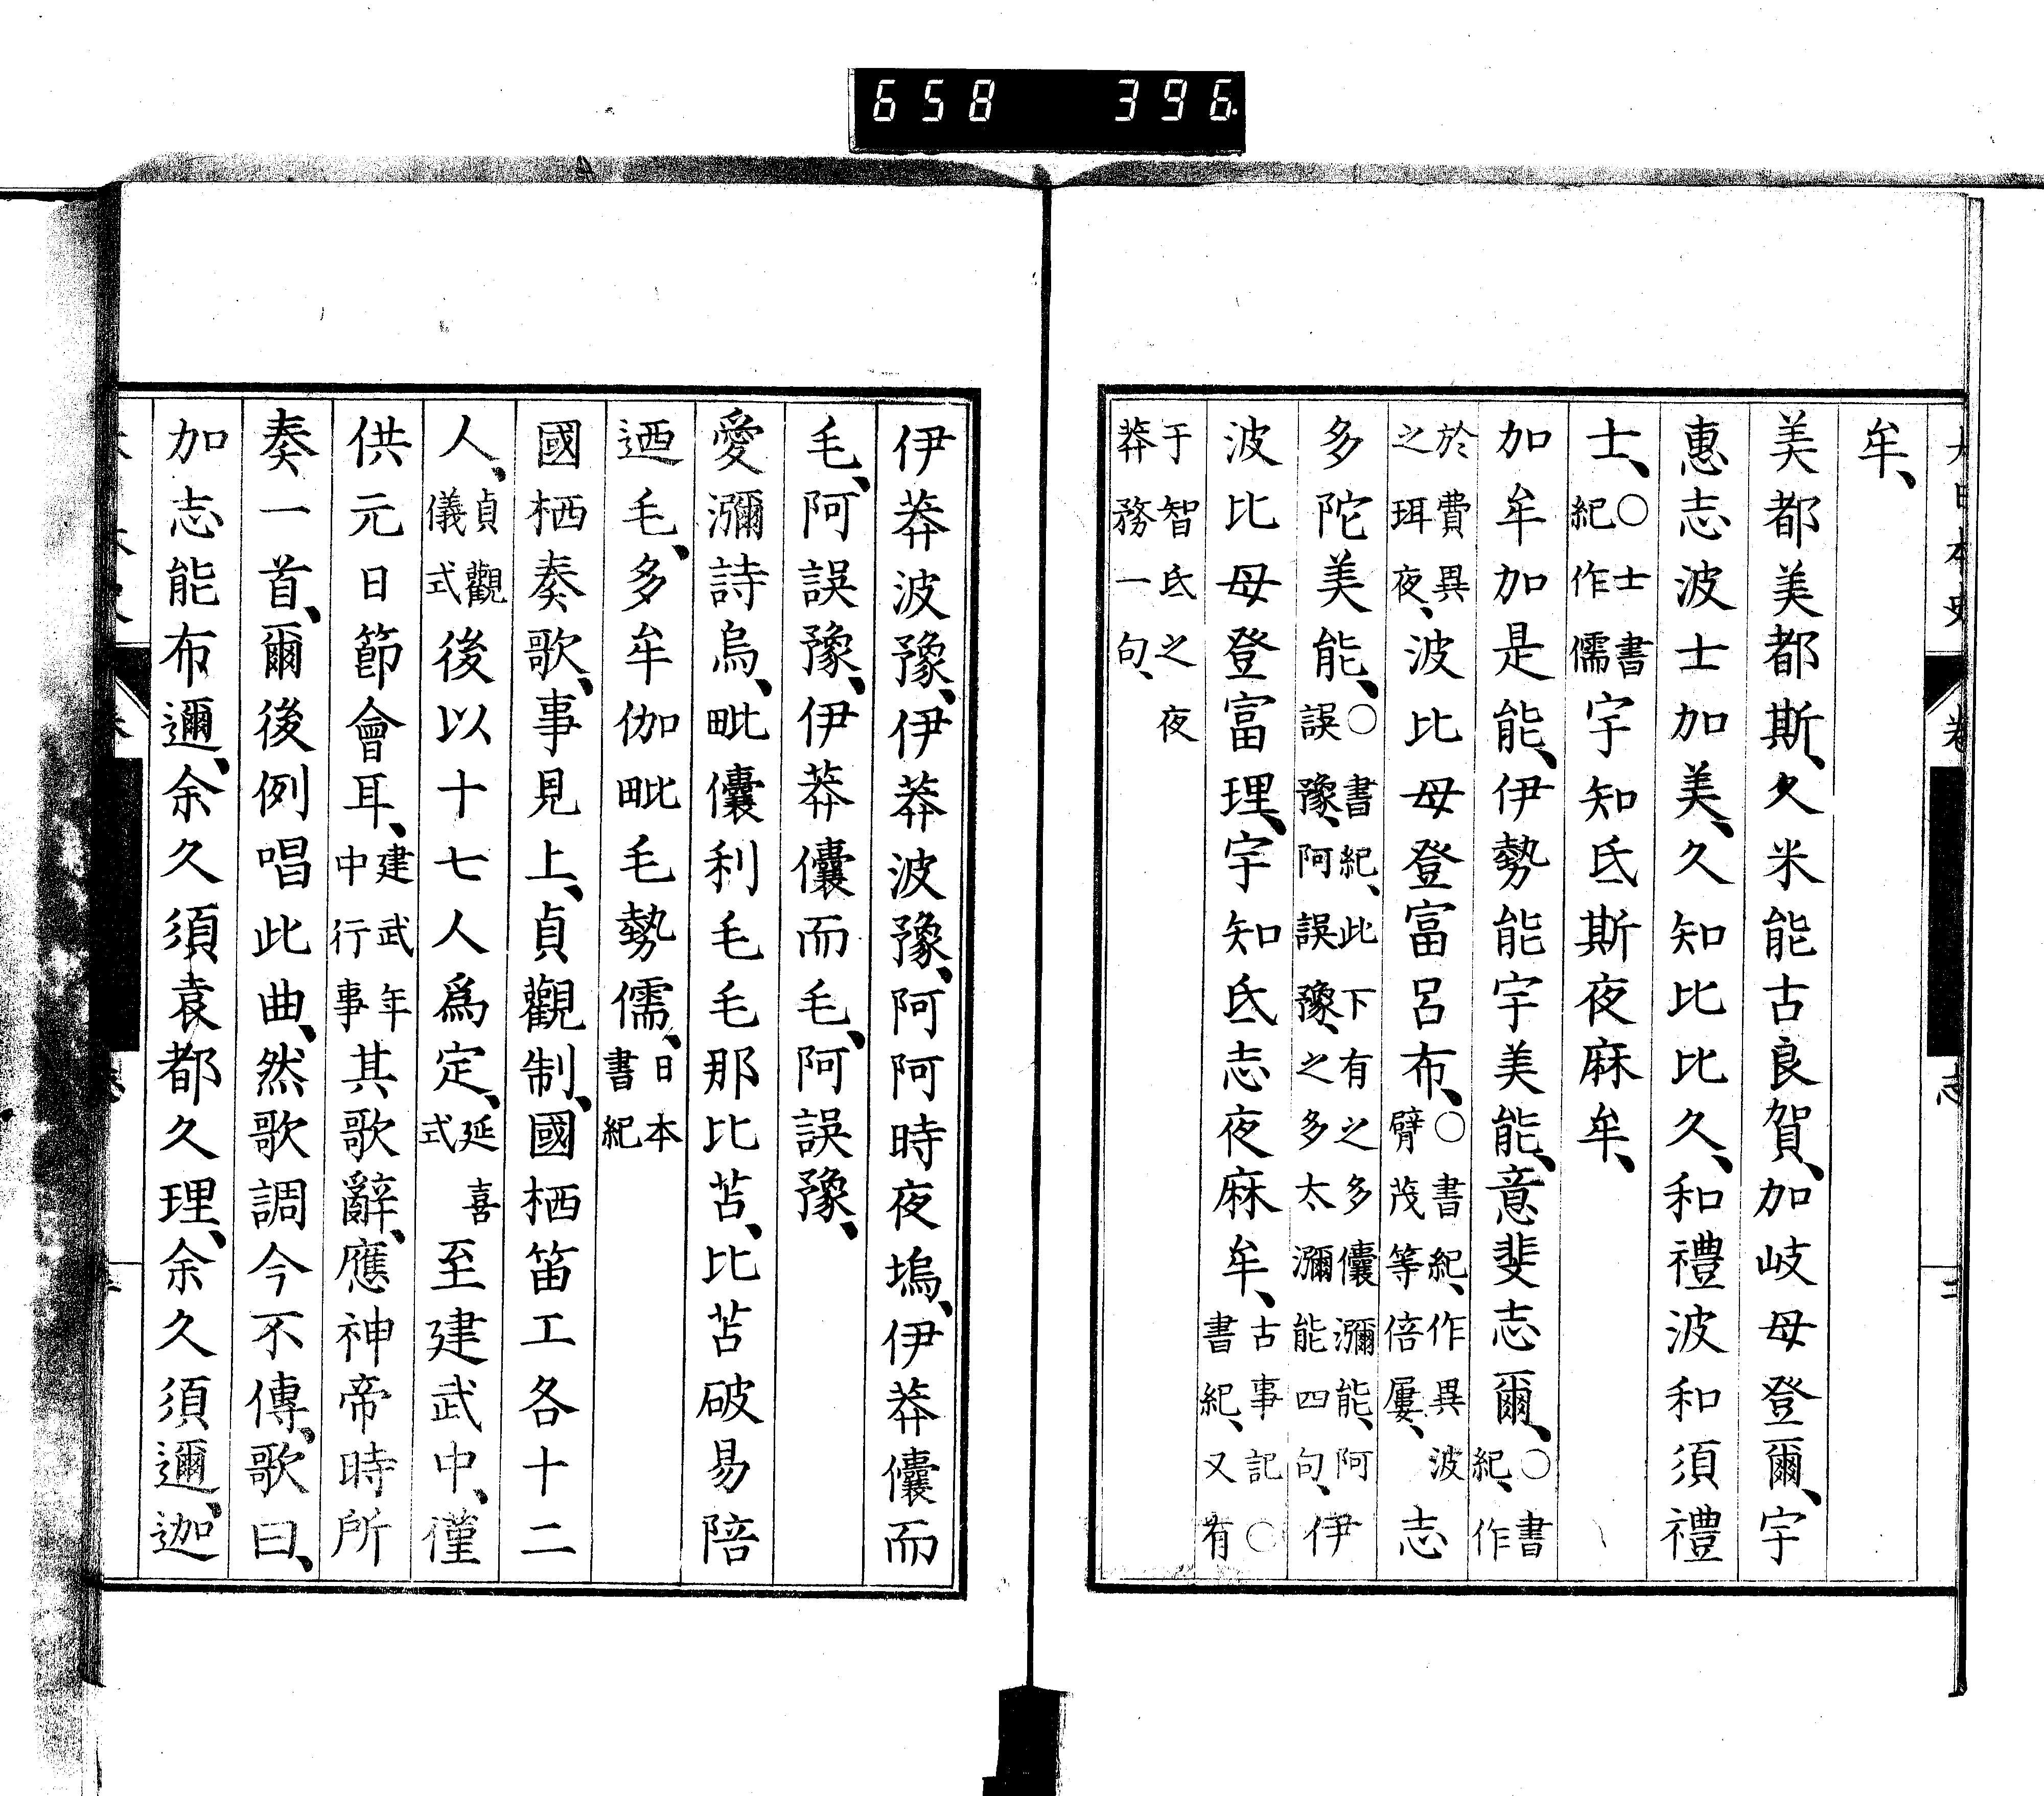 658 396
大日本史 卷 志
牟、
美都美都斯、久米能古良賀、加岐母登爾、宇
惠志波士加美、久知比比久、和禮波和須禮
士、○士書紀作儒宇知氐斯夜麻牟、
加牟加是能、伊勢能宇美能、意斐志爾、○書紀、作
於費異之珥夜、波比母登富呂布、○書紀、作異波臂茂等倍屢、志
多陀美能、○書紀、此下有之多儾瀰能、阿誤豫、阿誤豫、之多太瀰能四句、伊
波比母登富理、宇知氐志夜麻牟、古事記○書紀、又有
于智氐之夜莽務一句、
伊莽波豫、伊莽波豫、阿阿時夜塢、伊莽儾而
毛、阿誤豫、伊莽儾而毛、阿誤豫、
愛瀰詩烏、毗儾利毛毛那比苫、比苫破易陪
廼毛、多牟伽毗毛勢儒、日本書紀
國栖奏歌、事見上、貞觀制、國栖笛工各十二
人、貞觀儀式後以十七人爲定、延喜式至建武中、僅
供元日節會耳、建武年中行事其歌辭、應神帝時所
奏一首、爾後例唱此曲、然歌調今不傳、歌曰、
加志能布邇、余久須袁都久理、余久須邇、迦